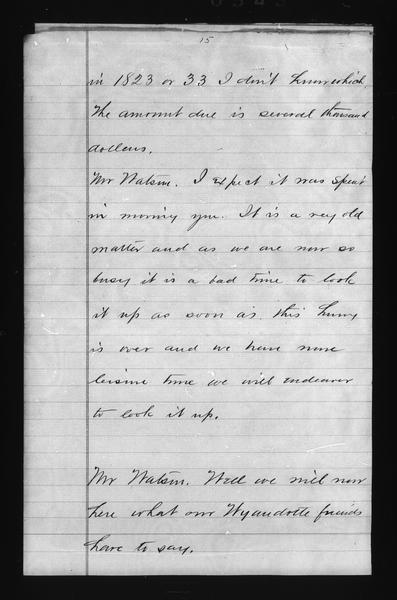 15
in 1823 or 33 I don't know which.
The amount due is several thousand
dollars.
Mr Watson. I expect it was spent
in moving you. It is a very old
matter and as we are now so
busy it is a bad time to look
it up as soon as this hurry
is over and we have more
leisure time we will endeavor
to look it up.
Mr Watson. Well we will now
here what our Wyandotte friends
have to say.